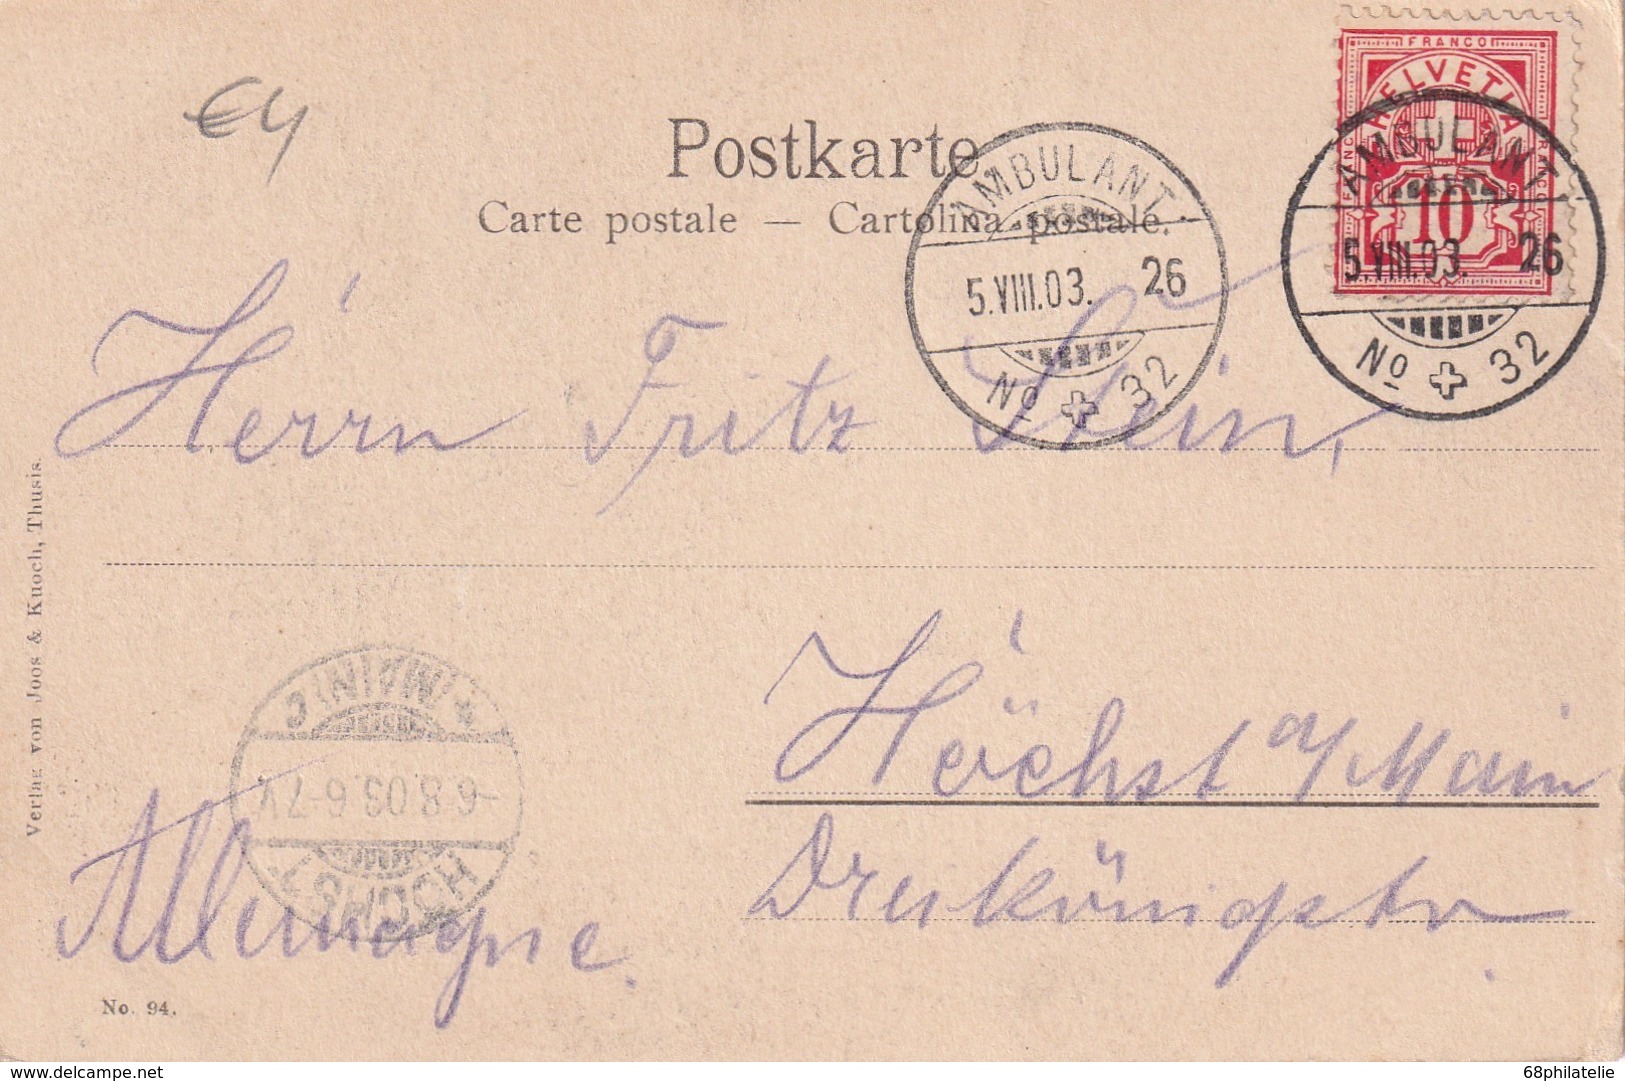 FRANCO
HELVETIA
10
€4
Postkarte
Carte postale — Cartolina postale.
AMBULANT.
5.VIII.03. 26
No 32
AMBULANT.
5.VIII.03. 26
No 32
Herrn Fritz Stein,
Höchst a/Main
Dreikönigstr.
Allemagne.
HÖCHST
-6.8.03.6-7V.
(MAIN) c
Verlag von Joos & Kuoch, Thusis.
No. 94.
www.delcampe.net
68philatelie